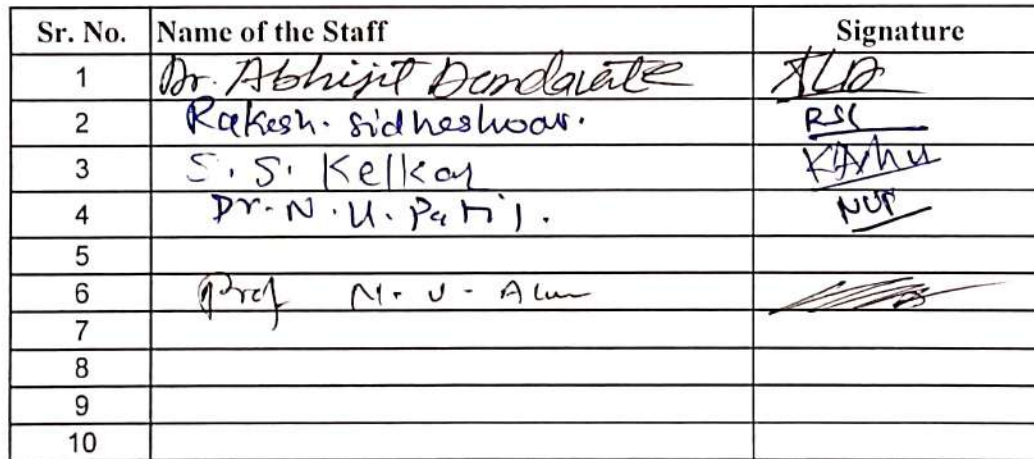 Sr. No. Name of the Staff Signature
1 Dr. Abhijit Dandavate ALD
2 Rakesh. sidheshwar. RSS
3 S. S. Kelkar
4 Dr. N. U. Patil. NUP
5
6 Prof N. U. 
7
8
9
10